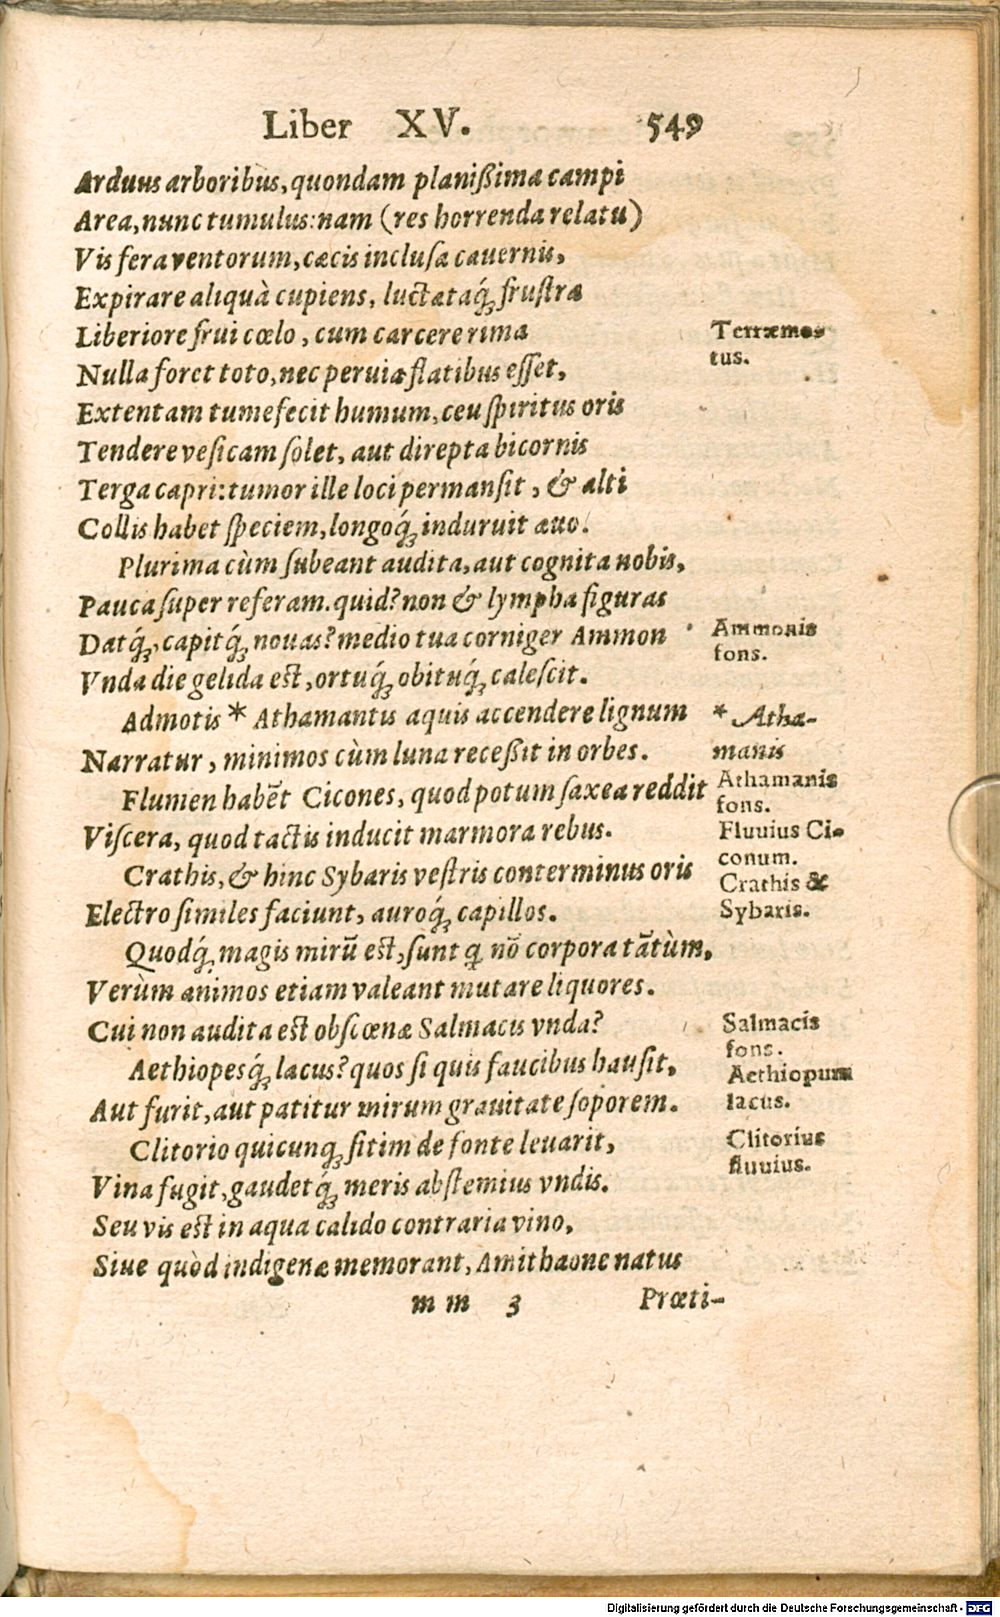 Liber XV. 549
Arduus arboribus, quondam planißima campi
Area, nunc tumulus: nam (res horrenda relatu)
Vis fera ventorum, cæcis inclusa cauernis,
Expirare aliquà cupiens, luctataq́; frustra
Liberiore frui cœlo, cum carcere rima
Terræmo-
tus.
Nulla foret toto, nec peruia flatibus esset,
Extentam tumefecit humum, ceu spiritus oris
Tendere vesicam solet, aut direpta bicornis
Terga capri: tumor ille loci permansit, & alti
Collis habet speciem, longoq́; induruit æuo.
Plurima cùm subeant audita, aut cognita nobis,
Pauca super referam. quid? non & lympha figuras
Datq́;, capitq́; nouas? medio tua corniger Ammon
Ammonis
fons.
Vnda die gelida est, ortuq́; obituq́; calescit.
Admotis * Athamantis aquis accendere lignum
* Atha-
manis
Narratur, minimos cùm luna receßit in orbes.
Flumen habẽt Cicones, quod potum saxea reddit
Athamanis
fons.
Viscera, quod tactis inducit marmora rebus.
Fluuius Ci-
conum.
Crathis, & hinc Sybaris vestris conterminus oris
Crathis &
Sybaris.
Electro similes faciunt, auroq́; capillos.
Quodq́; magis mirũ est, sunt q̃ nõ corpora tãtùm,
Verùm animos etiam valeant mutare liquores.
Cui non audita est obscœnæ Salmacis vnda?
Salmacis
fons.
Aethiopesq́; lacus? quos si quis faucibus hausit,
Aethiopum
lacus.
Aut furit, aut patitur mirum grauitate soporem.
Clitorio quicunq; sitim de fonte leuarit,
Clitorius
fluuius.
Vina fugit, gaudetq́; meris abstemius vndis.
Seu vis est in aqua calido contraria vino,
Siue quòd indigenæ memorant, Amithaone natus
mm 3 Præti-
Digitalisierung gefördert durch die Deutsche Forschungsgemeinschaft - DFG